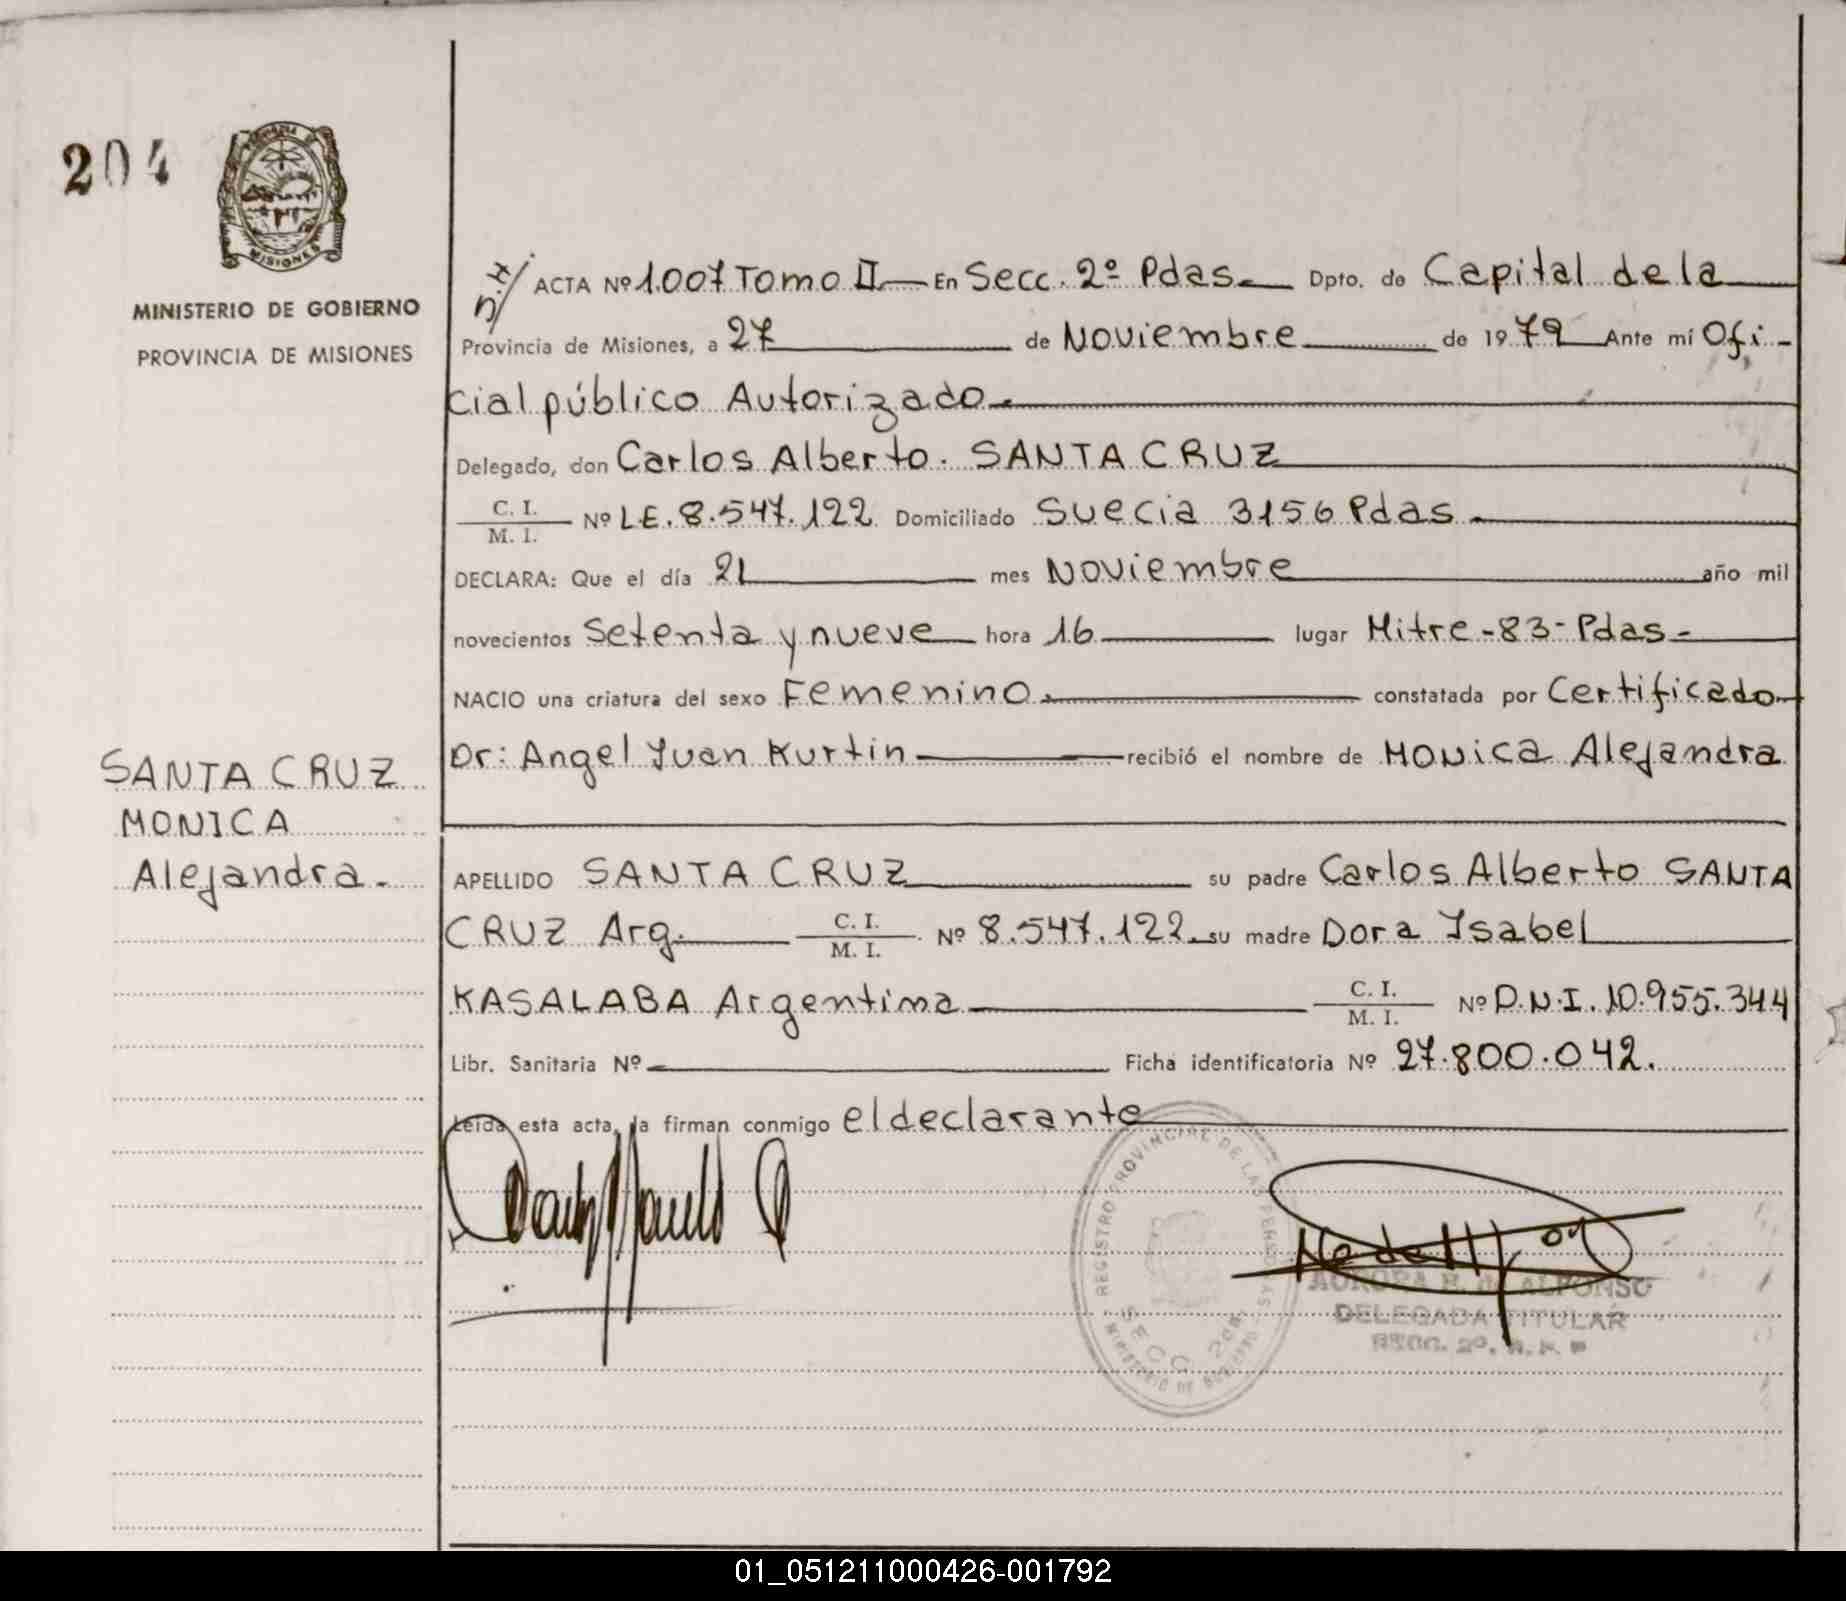 204
MISIONES
MINISTERIO DE GOBIERNO
PROVINCIA DE MISIONES
ACTA Nº 1.007 Tomo II En Secc. 2º Pdas. Dpto. de Capital de la
Provincia de Misiones, a 27 de Noviembre de 1979 Ante mí Ofi-
cial público Autorizado
Delegado, don Carlos Alberto. SANTA CRUZ
C. I.
M. I. Nº L.E. 8.547.122 Domiciliado Suecia 3156 Pdas
DECLARA: Que el día 21 mes Noviembre año mil
novecientos Setenta y nueve hora 16 lugar Mitre-83-Pdas-
NACIO una criatura del sexo Femenino. constatada por Certificado
Dr: Angel Juan Kurtin recibió el nombre de MONica Alejandra
SANTA CRUZ
MONICA
Alejandra.
APELLIDO SANTA CRUZ su padre Carlos Alberto SANTA
CRUZ Arg. C. I. M. I. Nº 8.547.122. su madre Dora Isabel
KASALABA Argentina C. I. M. I. Nº D.N.I. 10.955.344
Libr. Sanitaria Nº Ficha identificatoria Nº 27.800.042.
Leída esta acta, la firman conmigo el declarante
REGISTRO PROVINCIAL DE LAS PERSONAS
MINISTERIO DE GOBIERNO
SECC 2da.
AURORA H. de ALFONSO
DELEGADA TITULAR
SECC. 2º.
01_051211000426-001792